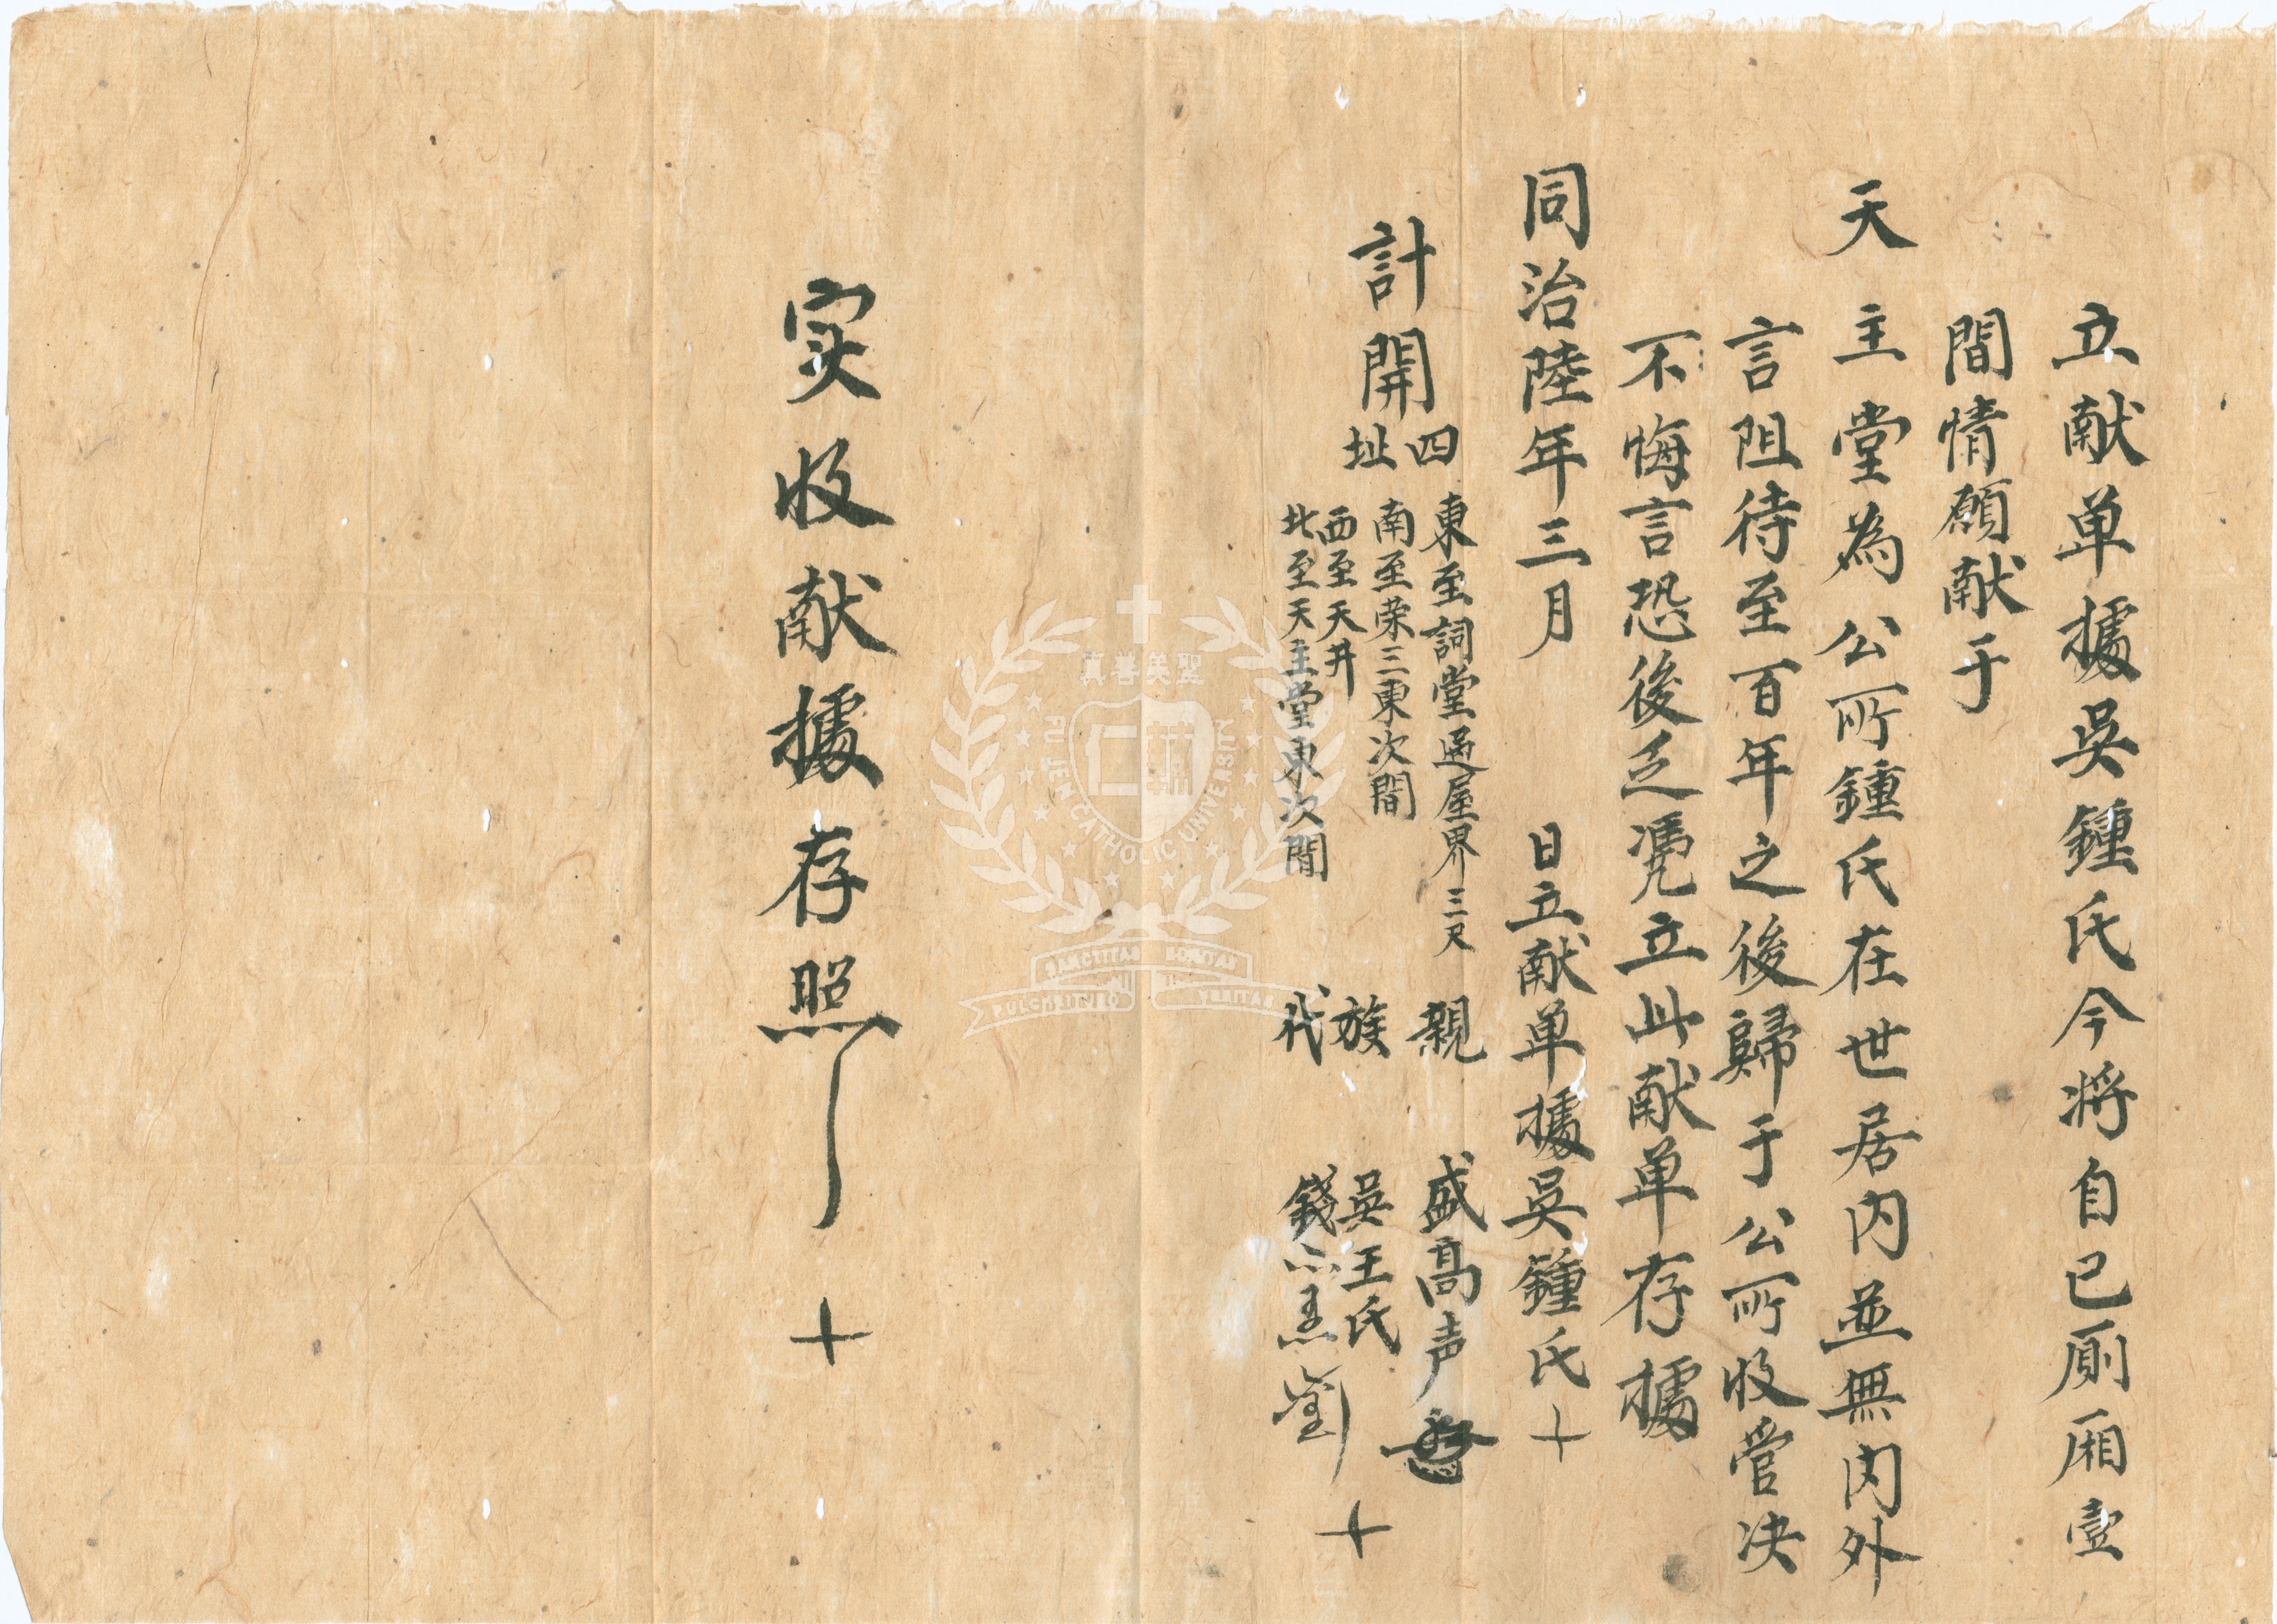 立献单據吳鍾氏今将自己廁厢壹
間情願献于
天主堂為公所鍾氏在世居内並無内外
言阻待至百年之後歸于公所收管决
不悔言恐後乏凴立此献单存據
同治陸年三月 日立献单據吳鍾氏十
計開四址
東至詞堂過屋界三尺
南至荣三東次間
西至天井
北至天主堂東次間
親 盛高声
族 吳王氏 十
代 錢
实收献據存照 十
真善美聖
FU JEN CATHOLIC UNIVERSITY
SANCTITAS BONITAS
PULCHRITUDO VERITAS